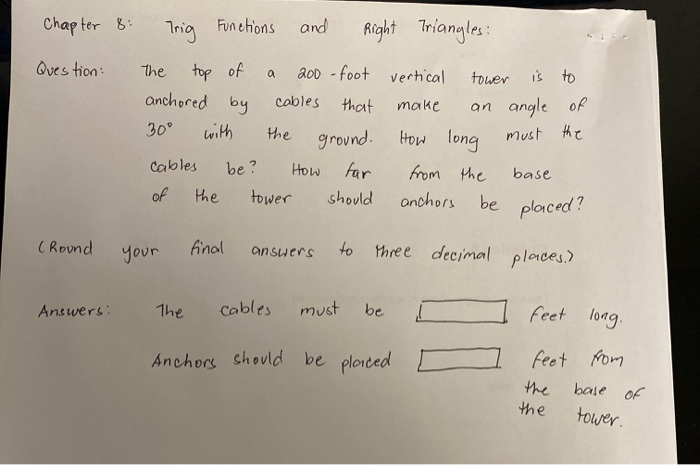 Chapter 8: Trig Functions and Right Triangles:
Question: The top of a 200-foot vertical tower is to
anchored by cables that make an angle of
30° with the ground. How long must the
cables be? How far from the base
of the tower should anchors be placed?
(Round your final answers to three decimal places.)
Answers: The cables must be feet long.
Anchors should be placed feet from
the base of
the tower.